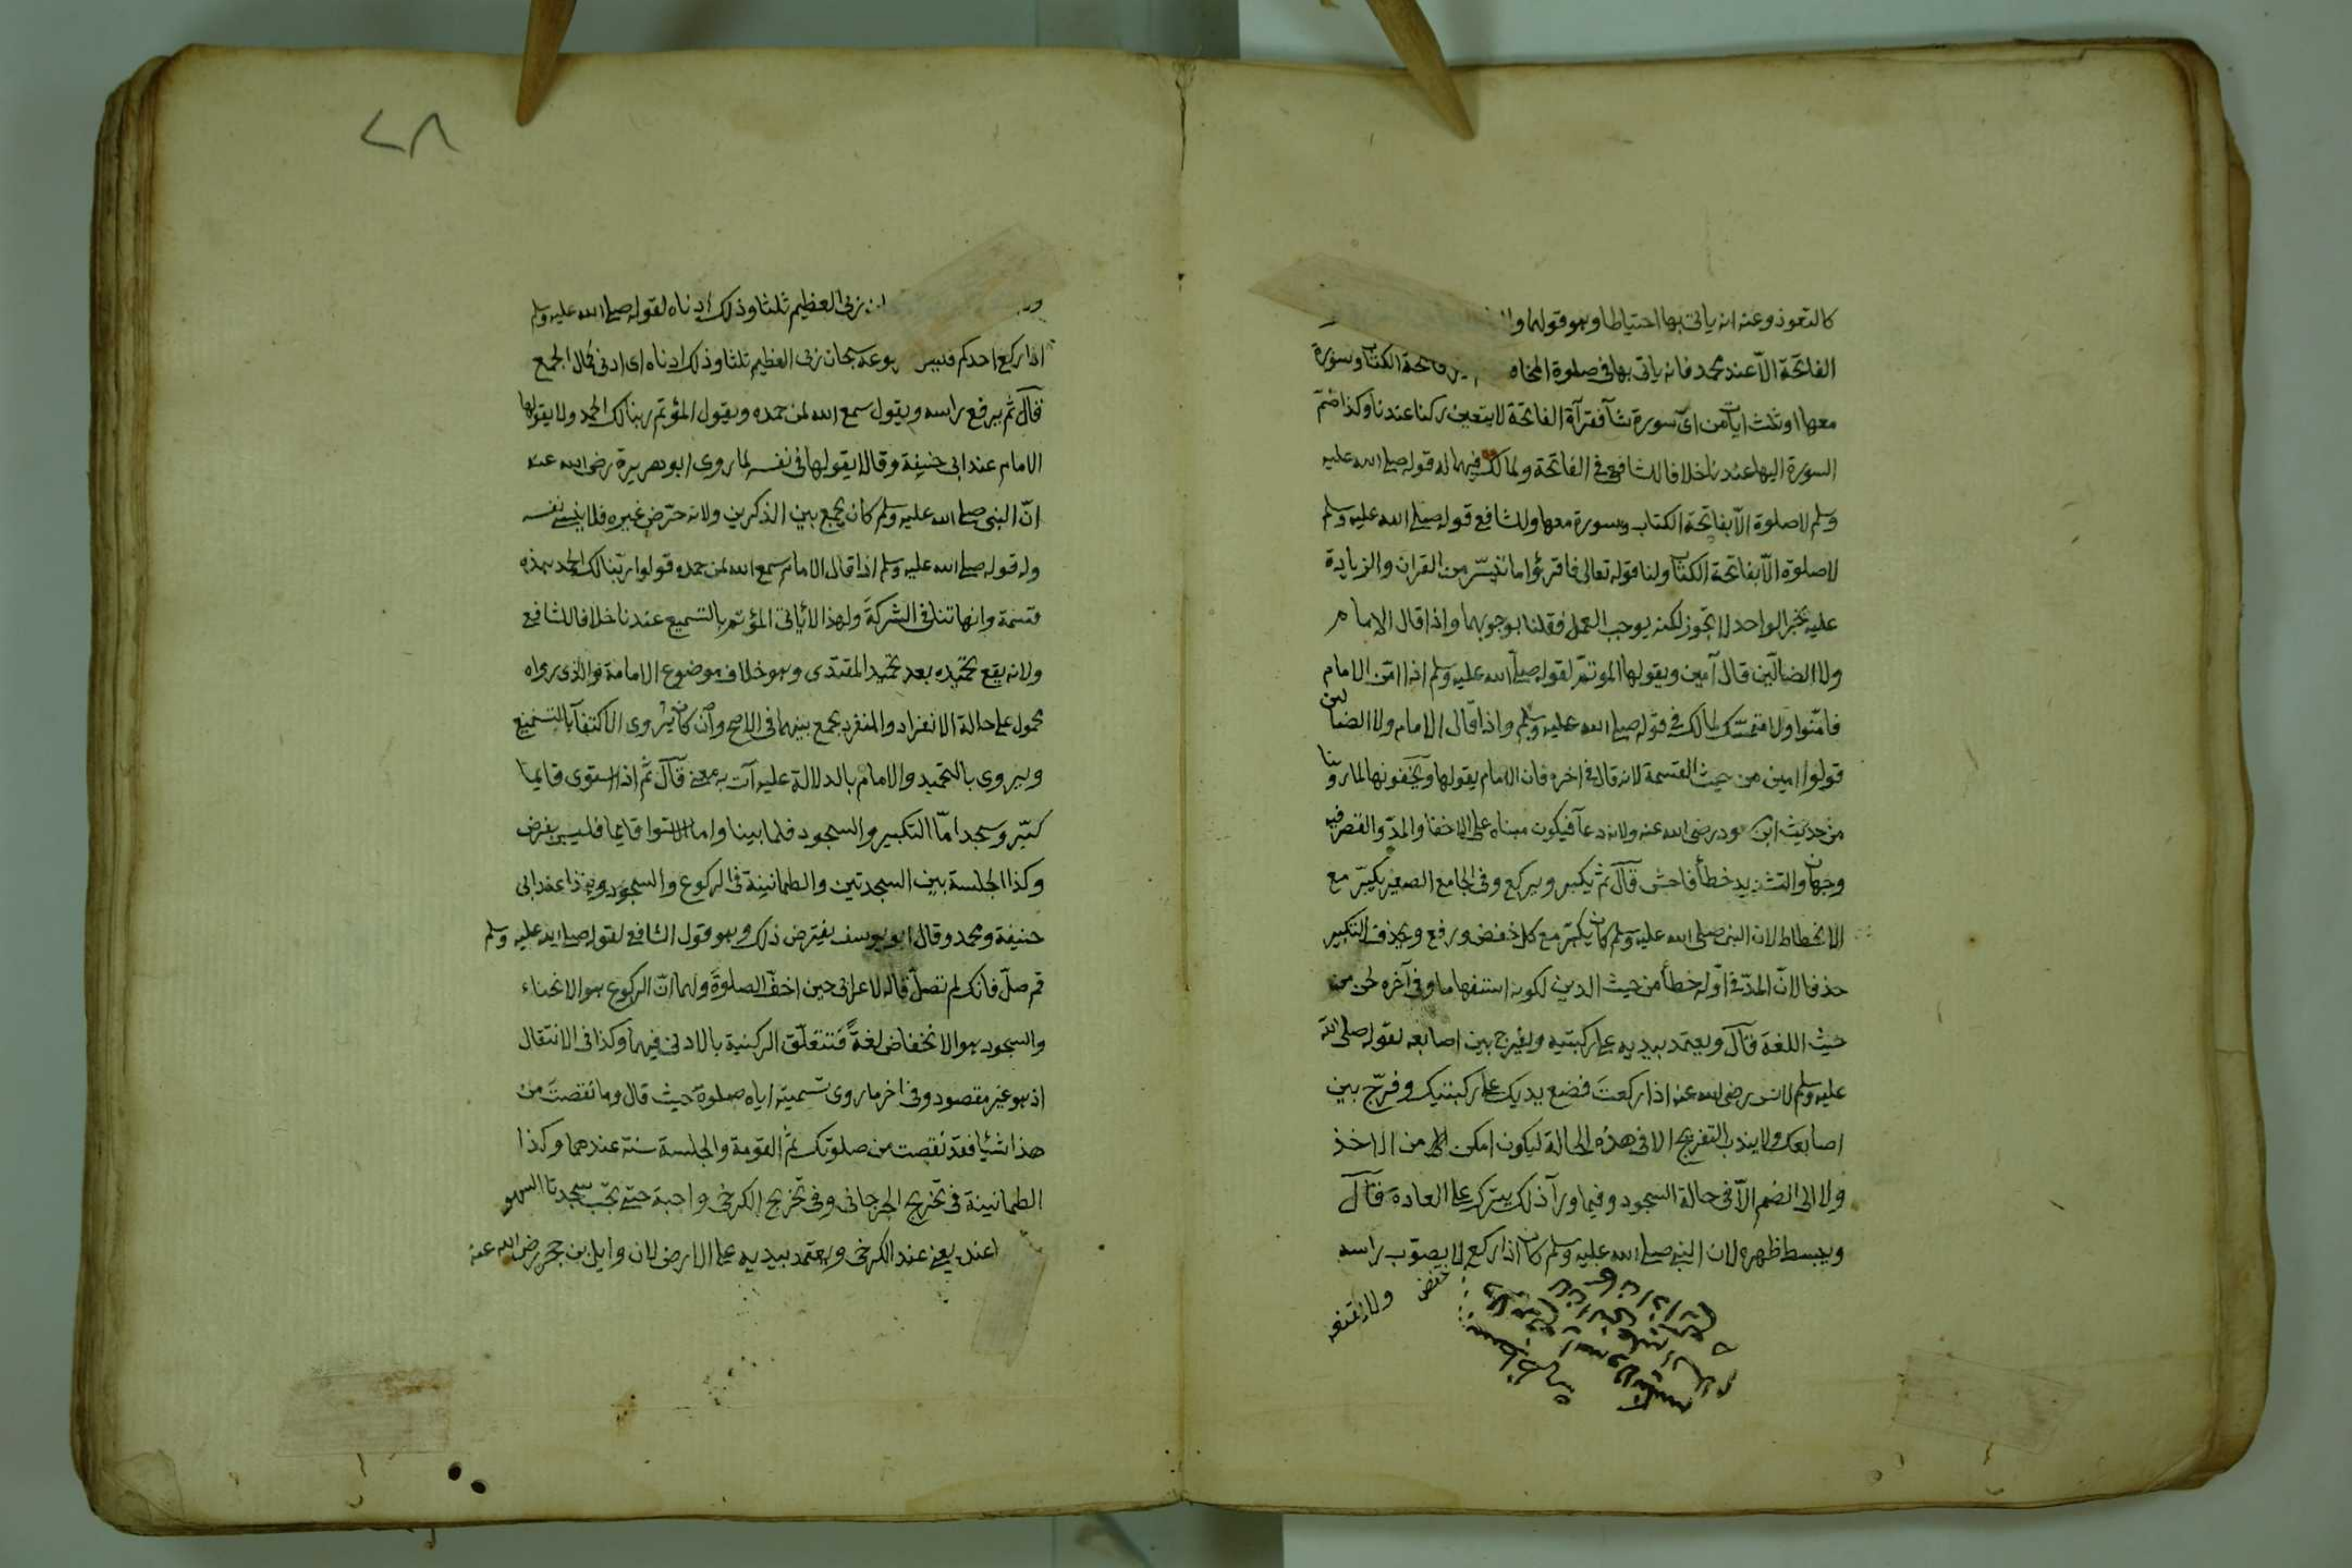 كالتعوذ وعنه انه ياتى بها احتياطا وهو قولهما
الفاتحة الا عند محمد فانه ياتى بها فى صلوة المخا فاتحة الكتاب وسورة
معها او ثلث ايات من اى سورة شآ فقرآة الفاتحة لا يتعين ركنا عندنا وكذا ضمّ
السورة اليها عندنا خلافا للشافعى فى الفاتحة ولمالك فيهما له قوله صلى الله عليه
وسلم لا صلوة الا بفاتحة الكتاب وسورة معها وللشافع قوله صلى الله عليه وسلم
لا صلوة الا بفاتحة الكتاب ولنا قوله تعالى فاقرؤا ما تيسّر من القران والزيادة
عليه بخبر الواحد لا تجوز لكنه يوجب العمل فقلنا بوجوبهما واذا قال الامام
ولا الضالّين قال آمين ويقولها الموتمّ لقوله صلى الله عليه وسلم اذا امّن الامام
فامّنوا ولا متمسّك لمالك فى قوله صلى الله عليه وسلم واذا قال الامام ولا الضالين
قولوا امين من حيث القسمة لانه قال فى اخره فان الامام يقولها ويخفونها لما روينا
من حديث ابن ود رضى الله عنه ولانه دعآ فيكون مبناه على الاخفا والمدّ والقصر فيه
وجهان والتشديد خطأ فاحش قآل ثم يكبر ويركع وفى الجامع الصغير يكبّر مع
الانحطاط لان النبى صلى الله عليه وسلم كان يكبّر مع كل خفض ورفع ويحذف التكبير
حذفا لانّ المدّ فى اوّله خطأ من حيث الدين لكونه استفهاما وفى آخره لحن من
حيث اللغة قآل ويعتمد بيديه على ركبتيه ويفرج بين اصابعه لقوله صلى الله
عليه وسلم لانس رضى الله عنه اذا ركعت فضع يديك على ركبتيك وفرّج بين
اصابعك ولا يندب التفريج الا فى هذه الحالة ليكون امكن من الاخذ
ولا الى الضم الّا فى حالة السجود وفيما ورآ ذلك يترك على العادة قآل
ويبسط ظهره لان النبى صلى الله عليه وسلم كان اذا ركع لا يصوّب راسه
خفض ولا يقنعه
٢٨
ربى العظيم ثلثا وذلك ادناه لقوله صلى الله عليه وسلم
اذا ركع احدكم فليس وعه سبحان ربى العظيم ثلثا وذلك ادناه اى ادنى كمال الجمع
قآل ثم يرفع راسه ويقول سمع الله لمن حمده ويقول المؤتم ربنا لك الحمد ولا يقولها
الامام عند ابى حنيفة وقالا يقولها فى نفسه لما روى ابو هريرة رضى الله عنه
انّ النبى صلى الله عليه وسلم كان يجمع بين الذكرين ولانه حرّض غيره فلا ينسى نفسه
وله قوله صلى الله عليه وسلم اذا قال الامام سمع الله لمن حمده قولوا ربّنا لك الحمد هذه
قسمة وانها تنافى الشركة ولهذا لا ياتى المؤتم بالتسميع عندنا خلافا للشافع
ولانه يقع تحميده بعد تحميد المقتدى وهو خلاف موضوع الامامة والذى رواه
محمول على حالة الانفراد والمنفرد يجمع بينهما فى الاصح وان كان يروى الاكتفآ بالتسميع
ويروى بالتحميد والامام بالدلالة عليه آت به معنى قآل ثم اذا استوى قايما
كبّر وسجد امّا التكبير والسجود فلما بينا واما الاستوا قايما فليس بفرض
وكذا الجلسة بين السجدتين والطمانينة فى الركوع والسجود وهذا عند ابى
حنيفة ومحمد وقال ابو يوسف يفترض ذلك وهو قول الشافع لقوله صلى الله عليه وسلم
قم صلّ فانك لم تصلّ قاله لاعرابى حين اخفّ الصلوة ولهما انّ الركوع هو الانحناء
والسجود هو الانخفاض لغةً فتتعلّق الركنية بالادنى فيهما وكذا فى الانتقال
اذ هو غير مقصود وفى اخر ما روى تسميته اياه صلوة حيث قال وما نقصت من
هذا شيئا فقد نقصت من صلوتك ثم القومة والجلسة سنة عندهما وكذا
الطمانينة فى تخريج الجرجانى وفى تخريج الكرخى واجبة حتى تجب سجدتا السهو
عند يعنى عند الكرخى ويعتمد بيديه على الارض لان وايل بن حجر رضى الله عنه